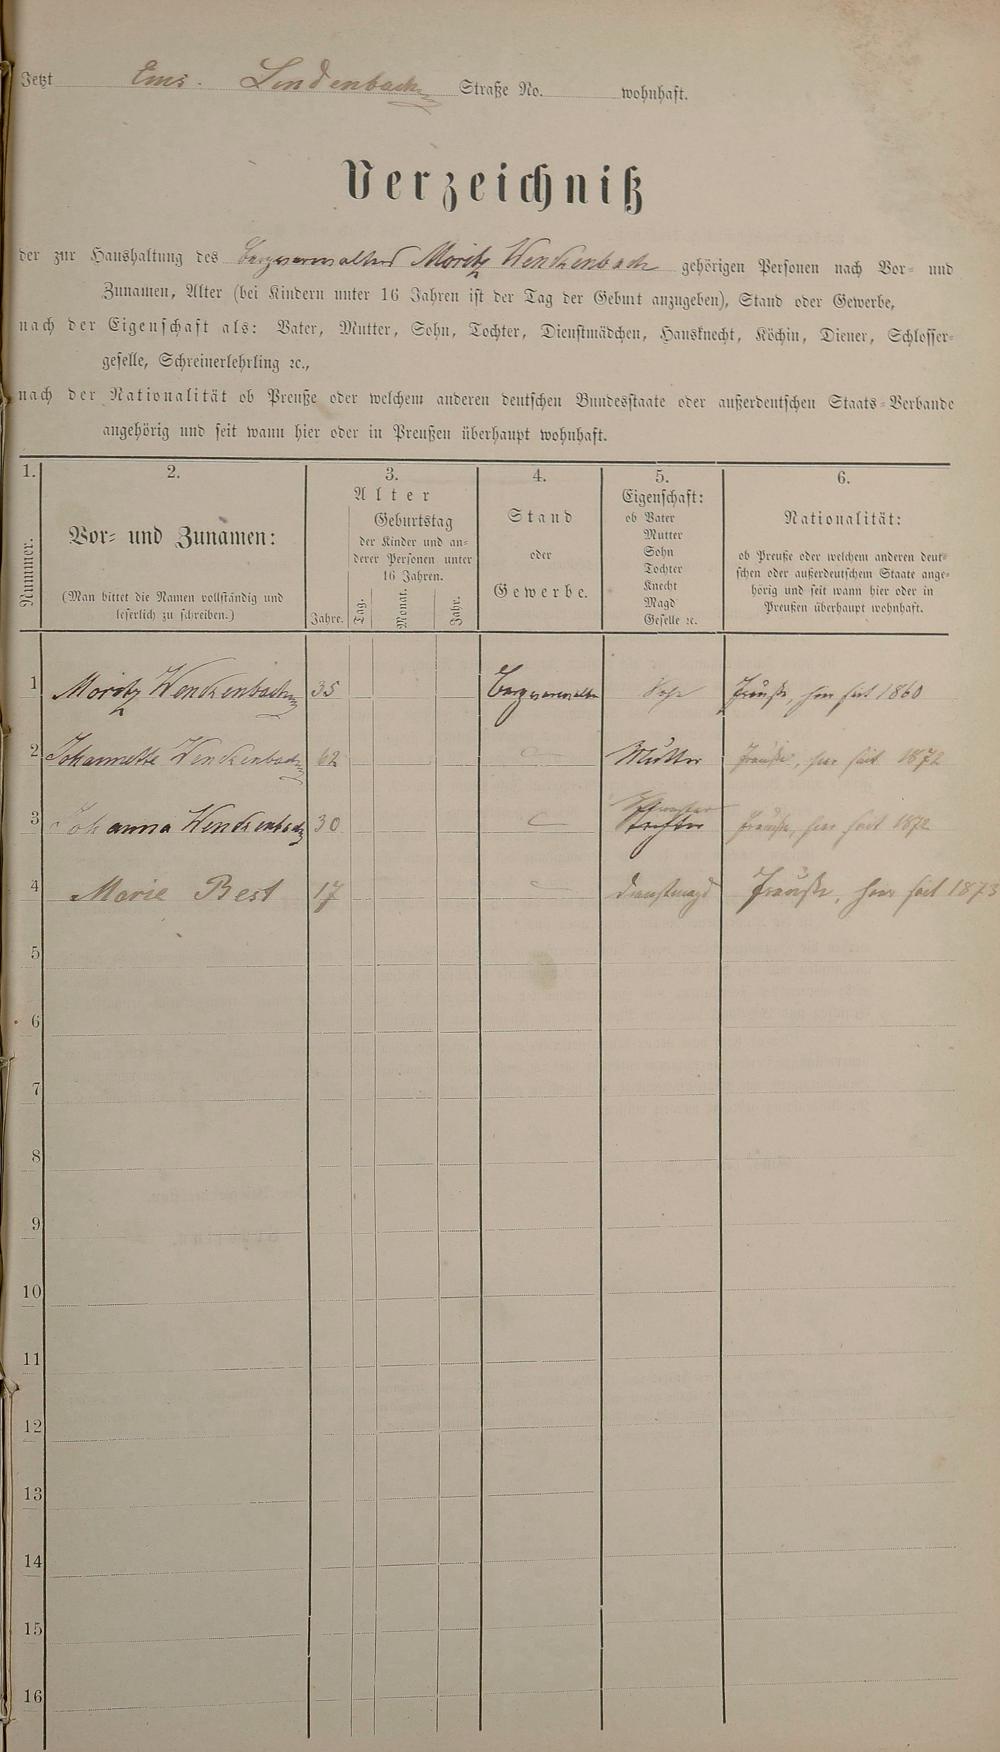 Jetzt Ems. Lindenbach Straße No. wohnhaft.
Verzeichniß
der zur Haushaltung des Bergverwalters Moritz Wenckenbach gehörigen Personen nach Vor- und
Zunamen, Alter (bei Kindern unter 16 Jahren ist der Tag der Geburt anzugeben), Stand oder Gewerbe,
nach der Eigenschaft als: Vater, Mutter, Sohn, Tochter, Dienstmädchen, Hausknecht, Köchin, Diener, Schlosser-
geselle, Schreinerlehrling ꝛc.,
nach der Nationalität ob Preuße oder welchem anderen deutschen Bundesstaate oder außerdeutschen Staats-Verbande
angehörig und seit wann hier oder in Preußen überhaupt wohnhaft.
1. 2. 3. 4. 5. 6.
Nummer.
Vor- und Zunamen:
(Man bittet die Namen vollständig und
leserlich zu schreiben.)
Alter
Geburtstag
der Kinder und an-
derer Personen unter
16 Jahren.
Jahre. Tag. Monat. Jahr.
Stand
oder
Gewerbe.
Eigenschaft:
ob Vater
Mutter
Sohn
Tochter
Knecht
Magd
Geselle ꝛc.
Nationalität:
ob Preuße oder welchem anderen deut-
schen oder außerdeutschem Staate ange-
hörig und seit wann hier oder in
Preußen überhaupt wohnhaft.
1 Moritz Wenckenbach 35 Bergverwalter Sohn Preuße, hier seit 1860
2 Johannette Wenckenbach 62 — Mutter Preuße, hier seit 1872
Schwester
3 Johanna Wenckenbach 30 — Tochter Preuße, hier seit 1872
4 Marie Best 17 — Dienstmagd Preuße, hier seit 1873
5
6
7
8
9
10
11
12
13
14
15
16